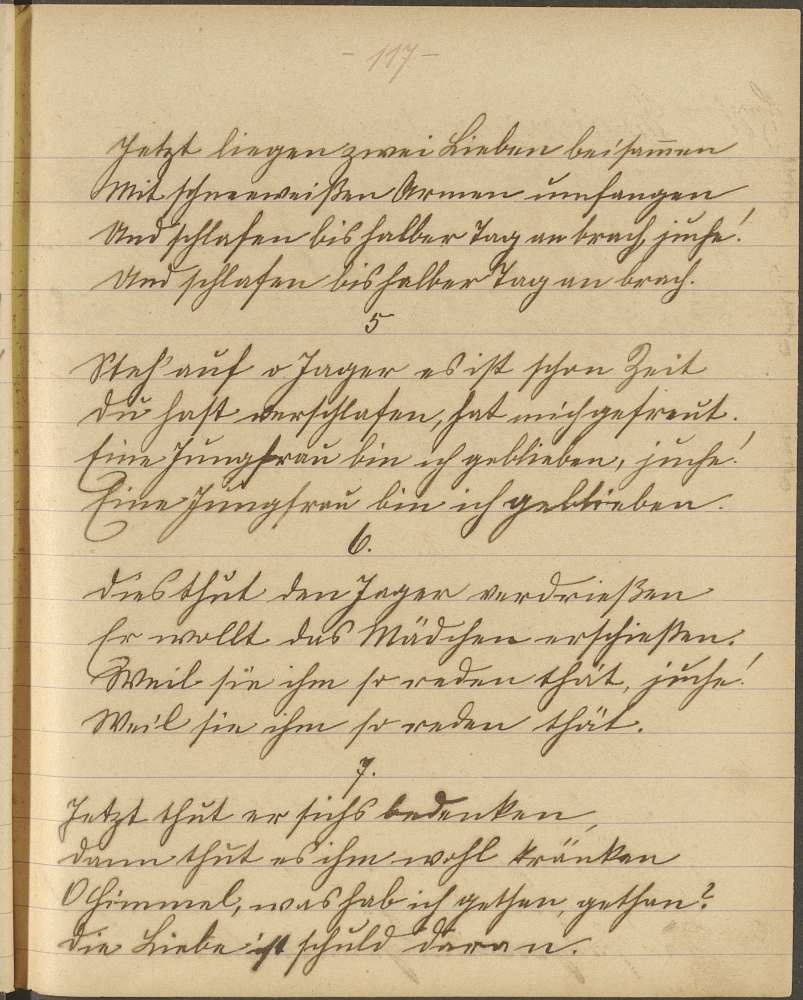 - 117 -
Jetzt liegen zwei Lieben beisam̅en
Mit schneeweißen Armen umfangen
Und schlafen bis halber Tag an brach, juche!
Und schlafen bis halber Tag an brach.
5
Steh' auf o Jager es ist schon Zeit
Du hast verschlafen, hat mich gefreut.
Eine Jungfrau bin ich geblieben, juche!
Eine Jungfrau bin ich geblieben.
6.
Dies thut den Jager verdrießen
Er wollt das Mädchen erschießen.
Weil sie ihm so reden thät, juche!
Weil sie ihm so reden thät.
7.
Jetzt thut er sichs bedenken,
Dann thut es ihm wohl kränken
O Himmel, was hab ich gethan, gethan?
Die Liebe ist schuld daran.